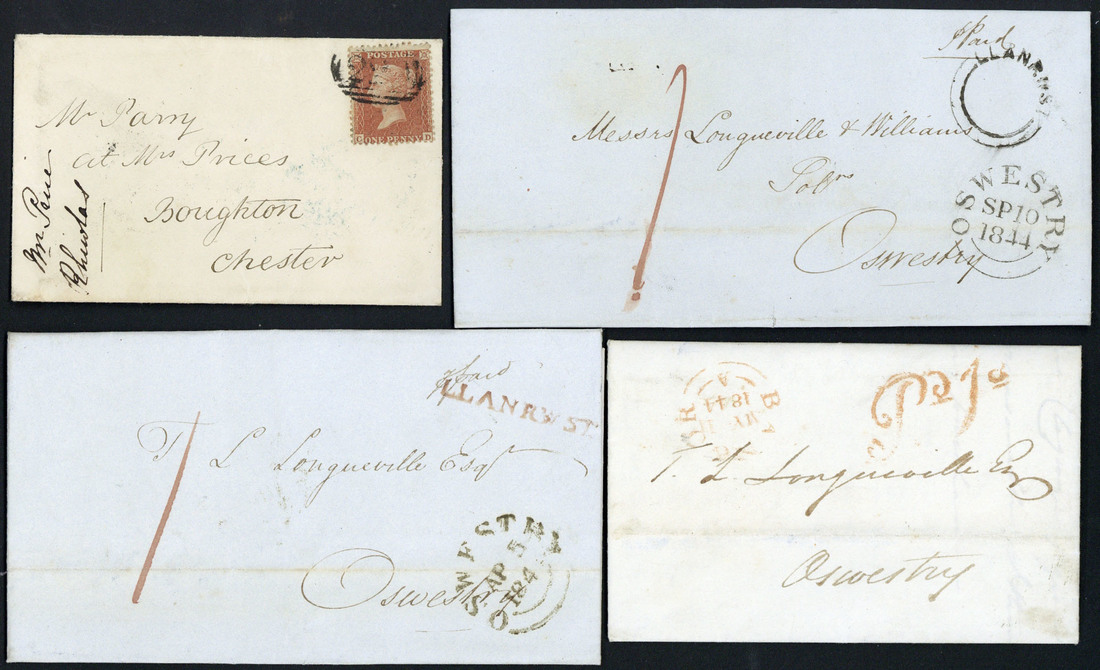 POSTAGE
ONE PENNY
C D
Mr Parry
at Mrs Prices
Boughton
Chester
Mr
Rhiwlas
Paid
LLANRWST
Messrs Longueville & Williams
Solrs
Oswestry
OSWESTRY
SP 10
1844
1
Paid
LLANRWST
T L Longueville Esqr
Oswestry
OSWESTRY
AP 5
184
1
1844
MY
Pd 1d
T. L. Longueville Esq
Oswestry